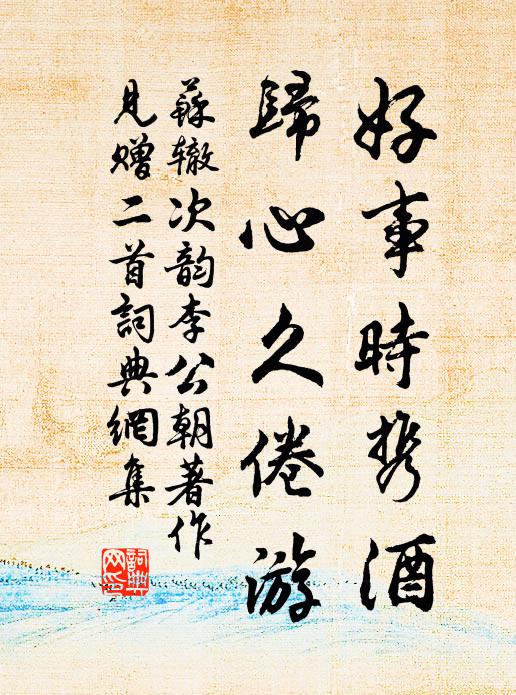 好事時携酒
歸心久倦游
蘇辙次韵李公朝著作
見贈二首詞典網集